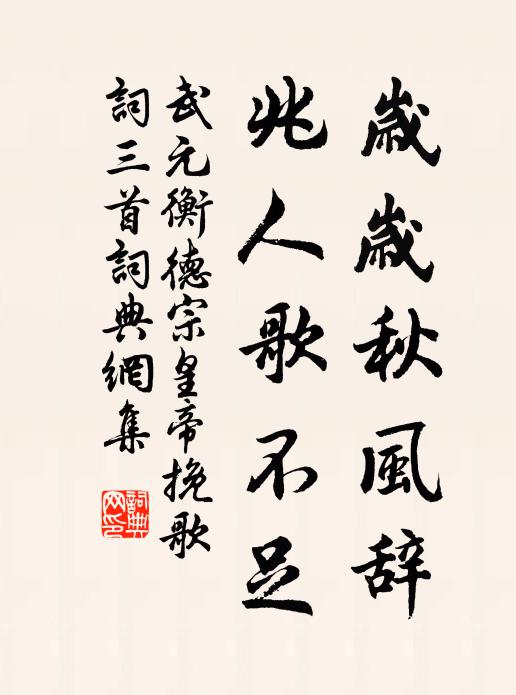 歲歲秋風辞
兆人歌不足
武元衡德宗皇帝挽歌
詞三首詞典網集
詞典網印